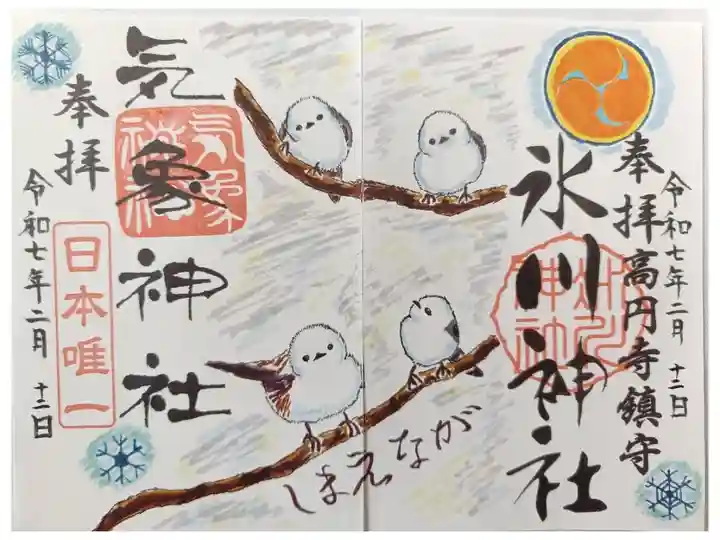 奉拝 高円寺鎮守
令和七年二月 十二日
氷川神社
氷川神社
しまえなが
気象神社
気象神社
奉拝
令和七年二月 十二日
日本唯一